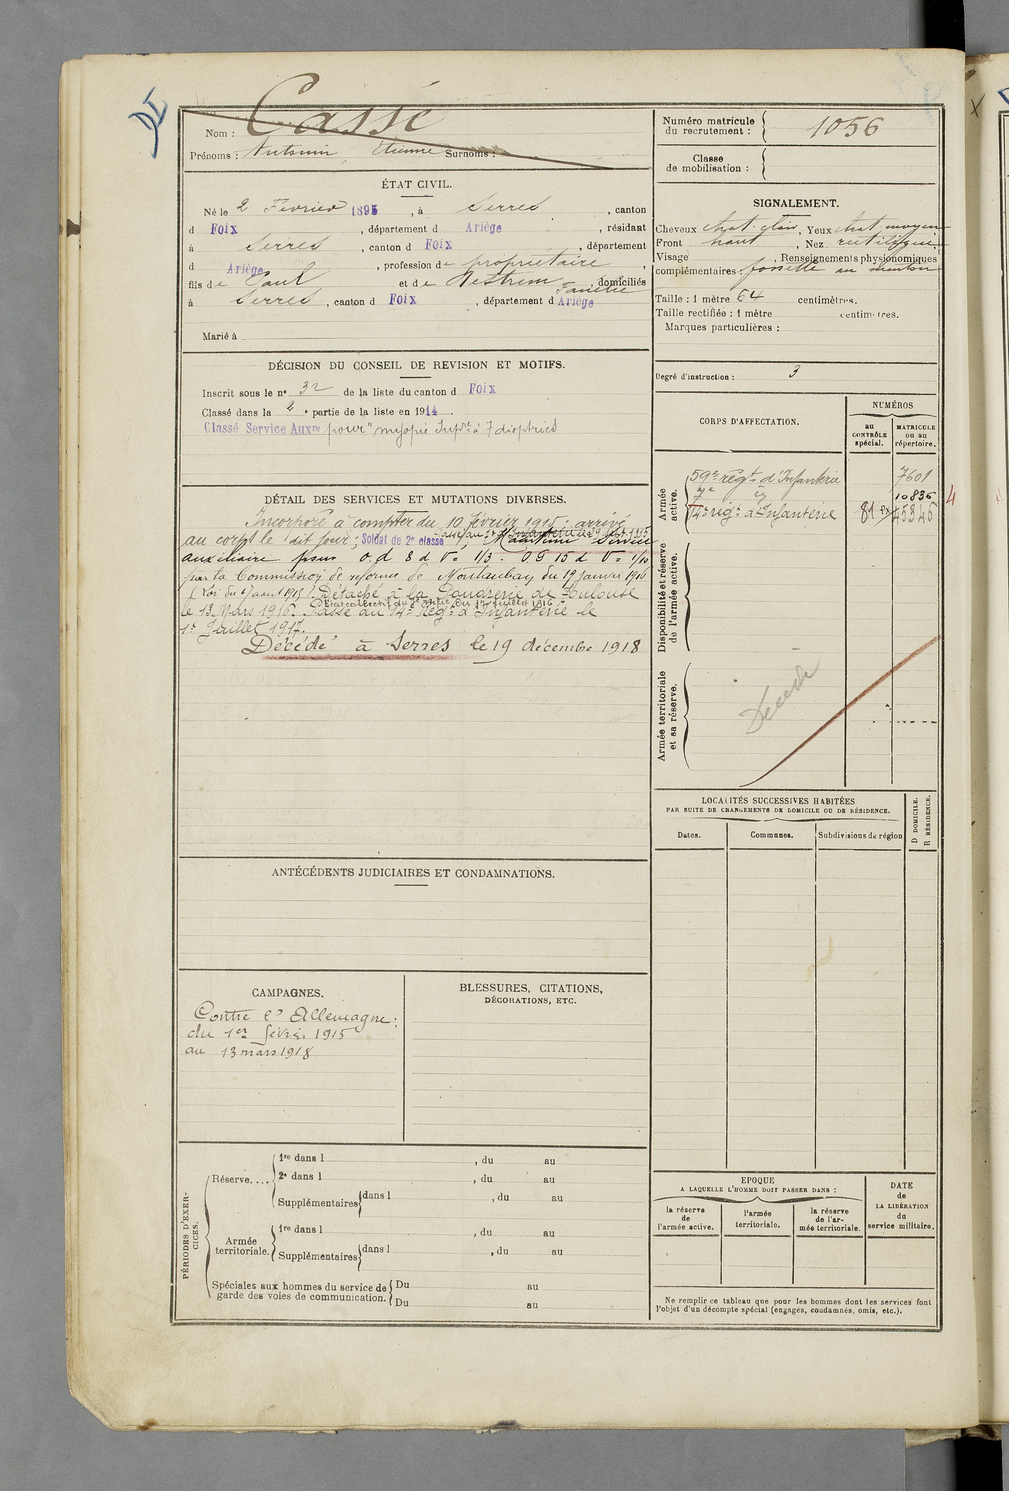 DI
Nom : Cassé
Prénoms : Antonin, Etienne Surnoms :
Numéro matricule du recrutement : 1056
Classe de mobilisation :
ÉTAT CIVIL.
Né le 2 Février 1895, à Serres, canton
d Foix, département d Ariège, résidant
à Serres, canton d Foix, département
d Ariège, profession de propriétaire
fils de Paul et de Mestrem Famélie, domiciliés
à Serres, canton d Foix, département d Ariège
Marié à
SIGNALEMENT.
Cheveux chat. clair, Yeux chat. moyen
Front haut, Nez rectiligne
Visage , Renseignements physionomiques
complémentaires : fossette au menton
Taille : 1 mètre 64 centimètres.
Taille rectifiée : 1 mètre centimètres.
Marques particulières :
Degré d'instruction : 3
DÉCISION DU CONSEIL DE REVISION ET MOTIFS.
Inscrit sous le n° 32 de la liste du canton d Foix
Classé dans la 2e partie de la liste en 1914.
Classé Service Auxre pour "myopie Supre à 7 dioptries
CORPS D'AFFECTATION.
NUMÉROS
au CONTRÔLE spécial.
MATRICULE ou au répertoire.
Armée active.
59e régt d'Infanterie 7601
7e id 10836
14e rég: d'Infanterie 81
4
Disponibilité et réserve de l'armée active.
Armée territoriale et sa réserve.
Décédé
DÉTAIL DES SERVICES ET MUTATIONS DIVERSES.
Incorporé à compter du 10 février 1915: arrivé
au corps le dit jour; Soldat de 2e classe Maintenu service
auxiliaire pour o. d 8 d V= 1/3. O G 15 d V= 1/10
par la Commission de réforme de Montauban du 19 Janvier 1916
Détaché à la Poudrerie de Toulouse
le 13 Mars 1916. Passé au 14e Rég: d'Infanterie le
1er Juillet 1917.
Décédé à Serres le 19 décembre 1918
LOCALITÉS SUCCESSIVES HABITÉES
PAR SUITE DE CHANGEMENTS DE DOMICILE OU DE RÉSIDENCE.
Dates.
Communes.
Subdivisions de région
D DOMICILE.
R RÉSIDENCE.
ANTÉCÉDENTS JUDICIAIRES ET CONDAMNATIONS.
CAMPAGNES.
Contre l'Allemagne:
du 1er février 1915
au 13 mars 1918
BLESSURES, CITATIONS,
DÉCORATIONS, ETC.
PÉRIODES D'EXERCICES.
Réserve....
1re dans l , du au
2e dans l , du au
Supplémentaires dans l , du au
Armée territoriale.
1re dans l , du au
Supplémentaires dans l , du au
Spéciales aux hommes du service de garde des voies de communication.
Du au
Du au
EPOQUE
A LAQUELLE L'HOMME DOIT PASSER DANS :
la réserve de l'armée active.
l'armée territoriale.
la réserve de l'armée territoriale.
DATE de LA LIBÉRATION du service militaire.
Ne remplir ce tableau que pour les hommes dont les services font
l'objet d'un décompte spécial (engagés, condamnés, omis, etc.).